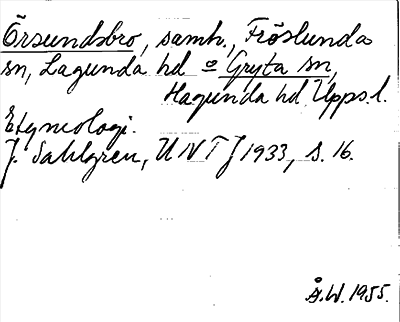 Örsundsbro, samh., Fröslunda
sn, Lagunda hd o Gryta sn,
Hagunda hd Upps.l.
Etymologi.
J. Sahlgren, UNT J 1933, s. 16.
Å.W. 1955.